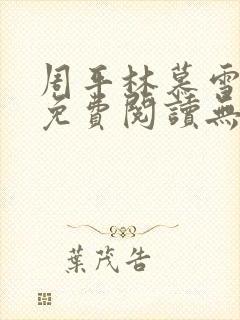 周平林慕雪
免費閱讀無
葉茂告